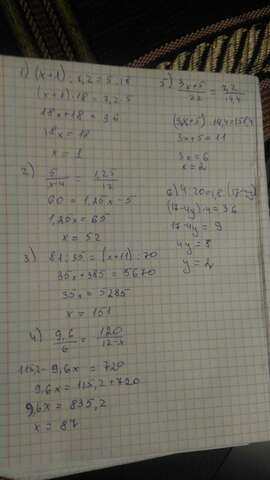 1) (x+1) : 7,2 = 5 : 18
(x+1) · 18 = 7,2 · 5
18x+18 = 36
18x = 18
x = 1
2) 5/x-4 = 1,25/12
60 = 1,25x - 5
1,25x = 65
x = 52
3) 81 : 35 = (x+11) : 70
35x + 385 = 5670
35x = 5285
x = 151
4) 9,6/6 = 120/12-x
115,2 - 9,6x = 720
9,6x = 115,2 + 720
9,6x = 835,2
x = 87
5) 3x+5/22 =
3x+5 = 11
3x = 6
x = 2
6)
(17-4y) · 4 = 36
17-4y = 9
4y = 8
y = 2